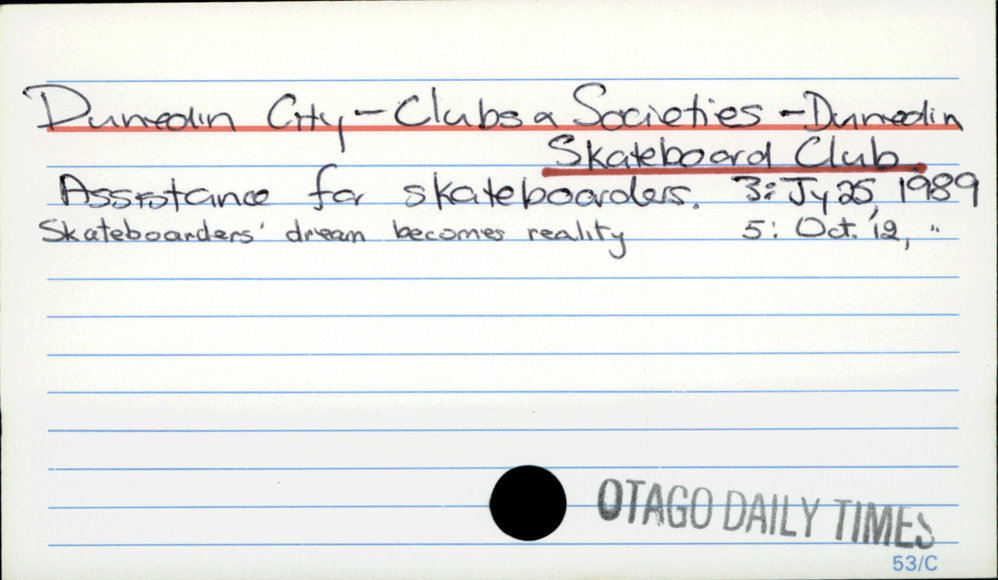 Dunedin City - Clubs & Societies - Dunedin
Skateboard Club
Assistance for skateboarders. 3: Jy 25, 1989
Skateboarders' dream becomes reality 5: Oct. 12, "
OTAGO DAILY TIMES
53/C